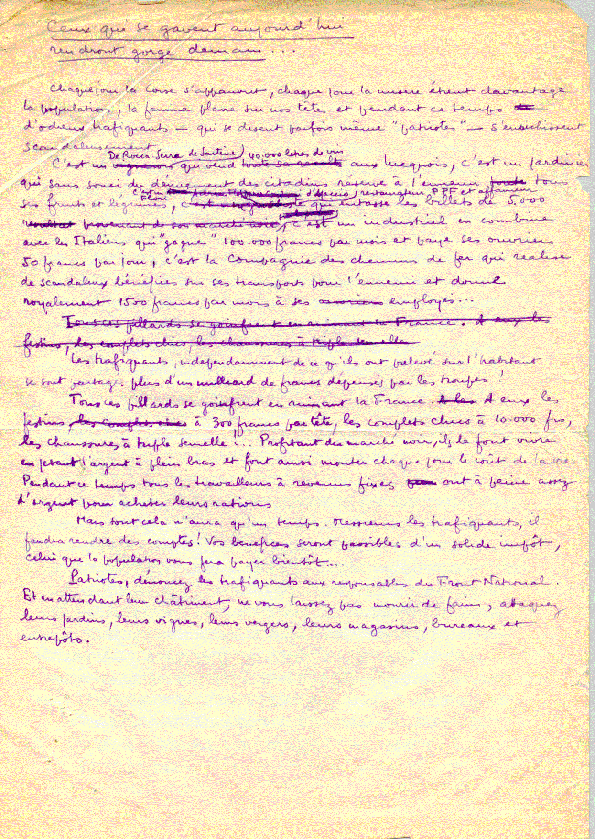 Ceux qui se gavent aujourd'hui
rendront gorge demain...
Chaque jour la Corse s'appauvrit, chaque jour la misère étreint davantage
la population, la famine plane sur nos têtes et pendant ce temps
d'odieux trafiquants — qui se disent parfois même "patriotes" — s'enrichissent
scandaleusement.
De Rocca-Serra de 40.000 litres de vin
C'est un vigneron qui vend toute sa récolte aux Lucquois, c'est un jardinier
qui sans souci du dénuement des citadins réserve à l'ennemi toute tous
c'est d'Ajaccio, restaurateur PPF et affameur
ses fruits et légumes, c'est qui entasse les billets de 5.000
provenant de son marché noir, c'est un industriel en combine
avec les Italiens qui "gagne" 100.000 francs par mois et paye ses ouvriers
50 francs par jour, c'est la Compagnie des chemins de fer qui réalise
de scandaleux bénéfices sur ses transports pour l'ennemi et donne
royalement 1500 francs par mois à ses employés...
Tous ces pillards se goinfrent en ruinant la France. A eux les
festins, les complets chics, les chaussures à triple semelle
Les trafiquants, indépendamment de ce qu'ils ont prélevé sur l'habitant
se sont partagé plus d'un milliard de francs dépensés par les troupes!
Tous ces pillards se goinfrent en ruinant la France. A les A eux les
festins, les complets chics à 300 francs par tête, les complets chics à 10.000 frs,
les chaussures à triple semelle!... Profitant du marché noir, ils le font vivre
en jetant l'argent à plein bras et font ainsi monter chaque jour le coût de la vie.
Pendant ce temps tous les travailleurs à revenus fixes ont à peine assez
d'argent pour acheter leurs rations
Mais tout cela n'aura qu'un temps. Messieurs les trafiquants, il
faudra rendre des comptes! Vos bénéfices seront passibles d'un solide impôt,
celui que la population vous fera payer bientôt...
Patriotes, dénoncez les trafiquants aux responsables du Front National.
Et en attendant leur châtiment, ne vous laissez pas mourir de faim, attaquez
leurs jardins, leurs vignes, leurs vergers, leurs magasins, bureaux et
entrepôts.